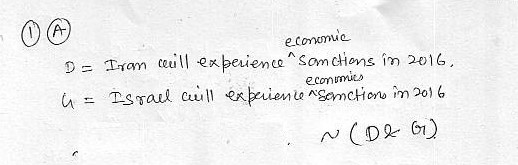 ① Ⓐ
D = Iran will experience ^economic sanctions in 2016.
G = Israel will experience ^economics sanctions in 2016
~ (D & G)